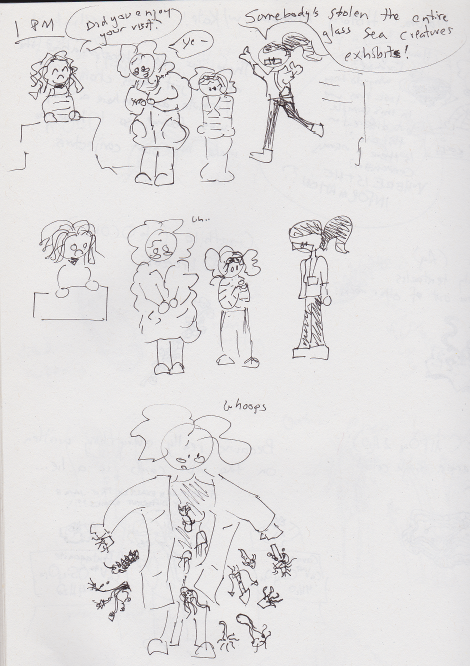 1 PM
Did you enjoy
your visit?
Ye-
Somebody's stolen the entire
glass sea creatures
exhibits!
Uh..
Whoops